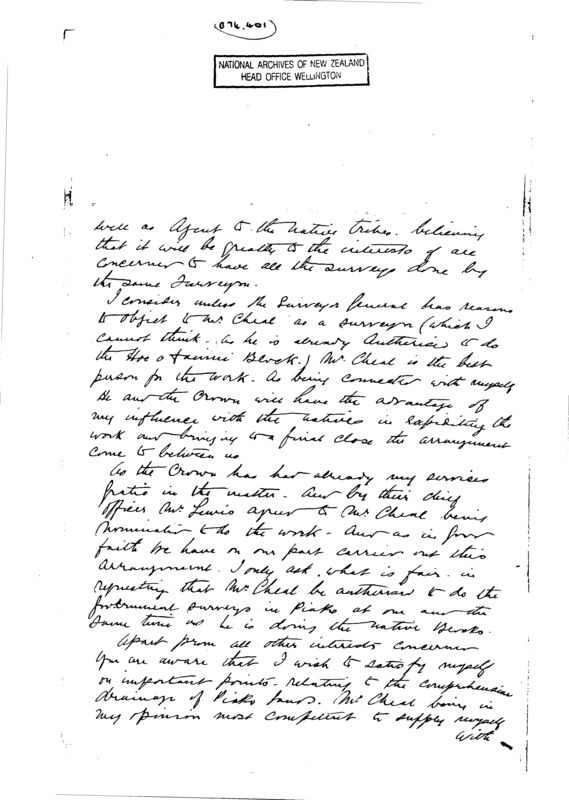 (B74.401)
NATIONAL ARCHIVES OF NEW ZEALAND
HEAD OFFICE WELLINGTON
well as Agent to the Native tribes. believing
that it will be greatly to the interests of all
concerned to have all the surveys done by
the same Surveyor.
I consider unless the Surveyor General has reasons
to object to Mr Cheal as a surveyor (which I
cannot think. As he is already Authorised to do
the Hoe o Block.) Mr Cheal is the best
person for the work. As being connected with myself
He and the Crown will have the advantage of
my influence with the natives in expediting the
work and bringing to a final close the arrangement
come to between us
As the Crown has had already my services
gratis in the matter. And by their chief
officer Mr Lewis agreed to Mr Cheal being
nominated to do the work. And as in good
faith we have on our part carried out this
Arrangement. I only ask what is fair in
requesting that Mr Cheal be authorised to do the
Government surveys in Piako at one and the
same time as he is doing the Native Blocks.
Apart from all other interests concerned
you are aware that I wish to satisfy myself
on important points relating to the comprehensive
drainage of Piako lands. Mr Cheal being in
my opinion most competent to supply myself
with